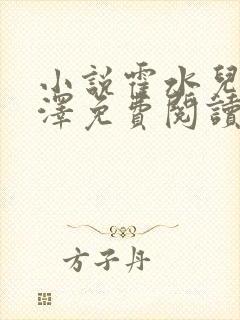 小說霍水兒
澤免費閱讀
方子丹